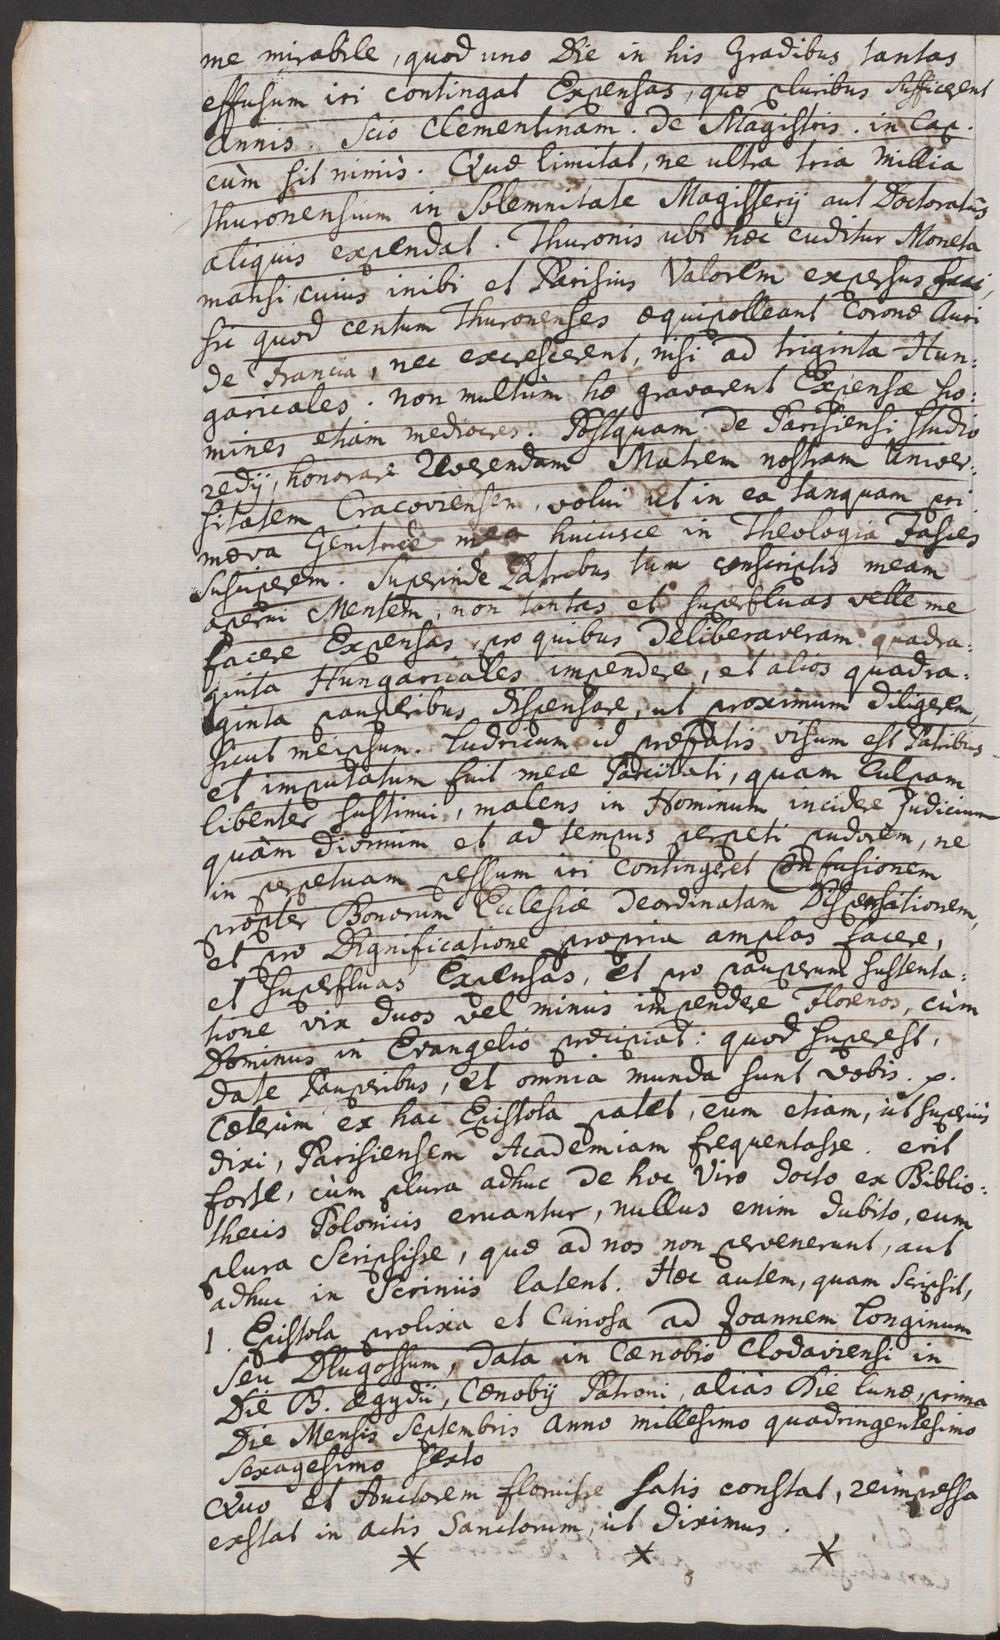 me mirabile, quod uno Die in his Gradibus tantas
effusum iri contingat Expensas, quæ pluribus sufficerent
Annis. Scio Clementinam. De Magistris. in Cap.
cùm sit nimis. Quæ limitat, ne ultra tria Millia
Thuronensium in Solemnitate Magisterij aut Doctoratûs
aliquis expendat. Thuronis ubi hæc cuditur Moneta
mansi, cuius inibi et Parisius Valorem expersus fui,
sic quod centum Thuronenses æquipolleant Coronæ Auri
de Francia, nec excrescerent, nisi ad triginta Hun:
garicales. non multùm hæ gravarent Expensæ ho:
mines etiam mediocres. Postquam de Parisiensi studio
redij, honorare Reverendam Matrem nostram Univer:
sitatem Cracoviensem, volui ut in ea tanquam pri
mæva Genitrice mea huiusce in Theologia Fasces
susciperem. Superinde Patribus tum conscriptis meam
aperui Mentem, non tantas et superfluas velle me
facere Expensas, pro quibus Deliberaveram quadra:
ginta Hungaricales impendere, et alios quadra:
ginta pauperibus dispensare, ut proximum diligerem,
sicut meipsum. Ludricum id præfatis visum est Patribus
et imputatum fuit meæ Parcitati, quam Culpam
libenter sustinui, malens in Hominum incidere Judicium
quàm divinum et ad tempus perpeti pudorem, ne
in perpetuam pessum iri contingeret Confusionem
propter Bonorum Ecclesiæ Deordinatam Dispensationem,
et pro Dignificatione propria amplas facere,
et superfluas Expensas, et pro pauperum sustenta:
tione vix duos vel minus impendere Florenos, cùm
Dominus in Evangelio præcipiat: quod superest,
date Pauperibus, et omnia munda sunt vobis. p.
Cæterùm ex hac Epistola patet, eum etiam, ut superiùs
dixi, Parisiensem Academiam frequentasse. erit
forte, cùm plura adhuc de hoc Viro docto ex Biblio:
thecis Polonicis eruantur, nullus enim dubito, eum
plura Scripsisse, quæ ad nos non pervenerunt, aut
adhuc in Scriniis latent. Hæc autem, quam Scripsit,
1. Epistola prolixa et Curiosa ad Joannem Longinum
seu Dlugossum, data in Cænobio Clodaviensi in
Die B. Ægydii, Cænobij Patroni, aliàs Die lunæ, prima
Die Mensis Septembris Anno millesimo quadringentesimo
sexagesimo sexto
Quo et Auctorem floruisse satis constat, reimpressa
exstat in actis Sanctorum, ut diximus.
* * *